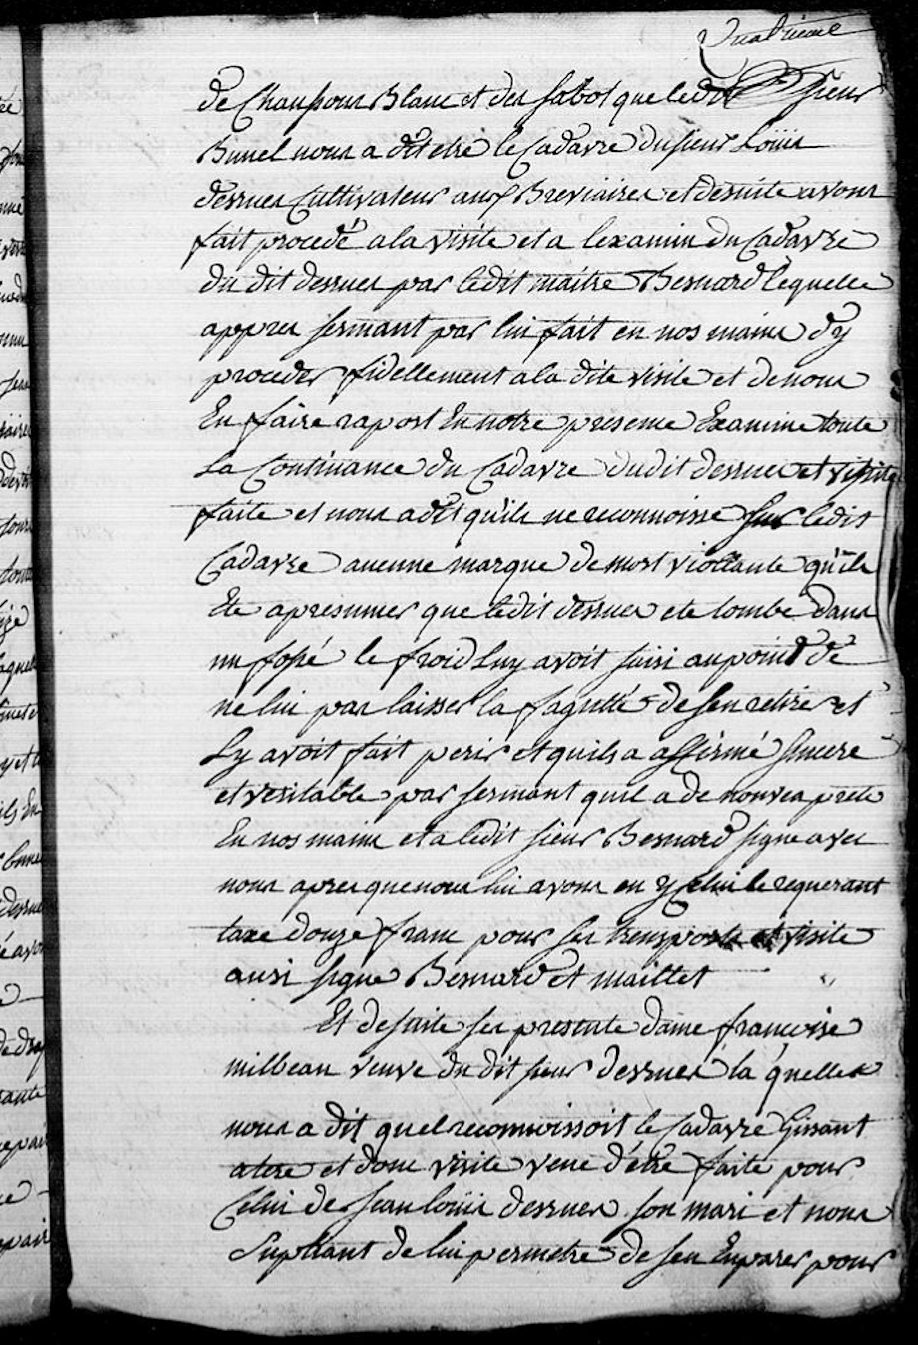 quatrieme
de Chaussons Blanc et des sabot que ledit Sieur
Brunel nous a dit etre le Cadavre du sieur Loüis
desrues Cultivateur aux Breviaires et de suite avons
fait procedé a la visite et a lexamin du Cadavre
du dit desrues par ledit maitre Besnard lequelle
appres sermant par lui fait en nos mains d'y
proceder fidellement a la dite visite et de nous
En faire raport En notre presence Examine toute
La Continance du Cadavre dudit desrues et visite
faite et nous a dit qu'ils ne reconnoisse sur ledit
Cadavre aucune marque de mort viollante qu'ils
Ete a presumer que ledit desrues ete tombe dans
un fossé le froid Luy avoit saisi au point de
ne lui pas laisser la faqulté de sen retire et
Ly avoit fait perir et quils a affirmé sincere
et veritable par sermant quil a de nouvea prete
En nos mains et a ledit sieur Besnard signe avec
nous apres que nous lui avons en y celui le requerant
taxe douze franc pour ses transport et visite
ausi signe Besnard et maillet
Et de suite ses presente dame francoise
milbeau veuve du dit sieur desrues la quelle
nous a dit quel reconnoissoit le Cadavre Gissant
atere et donc visite vene d'être faite pour
Celui de Jean Loüis desrues son mari et nous
Supliant de lui permetre de sen Enparer pour